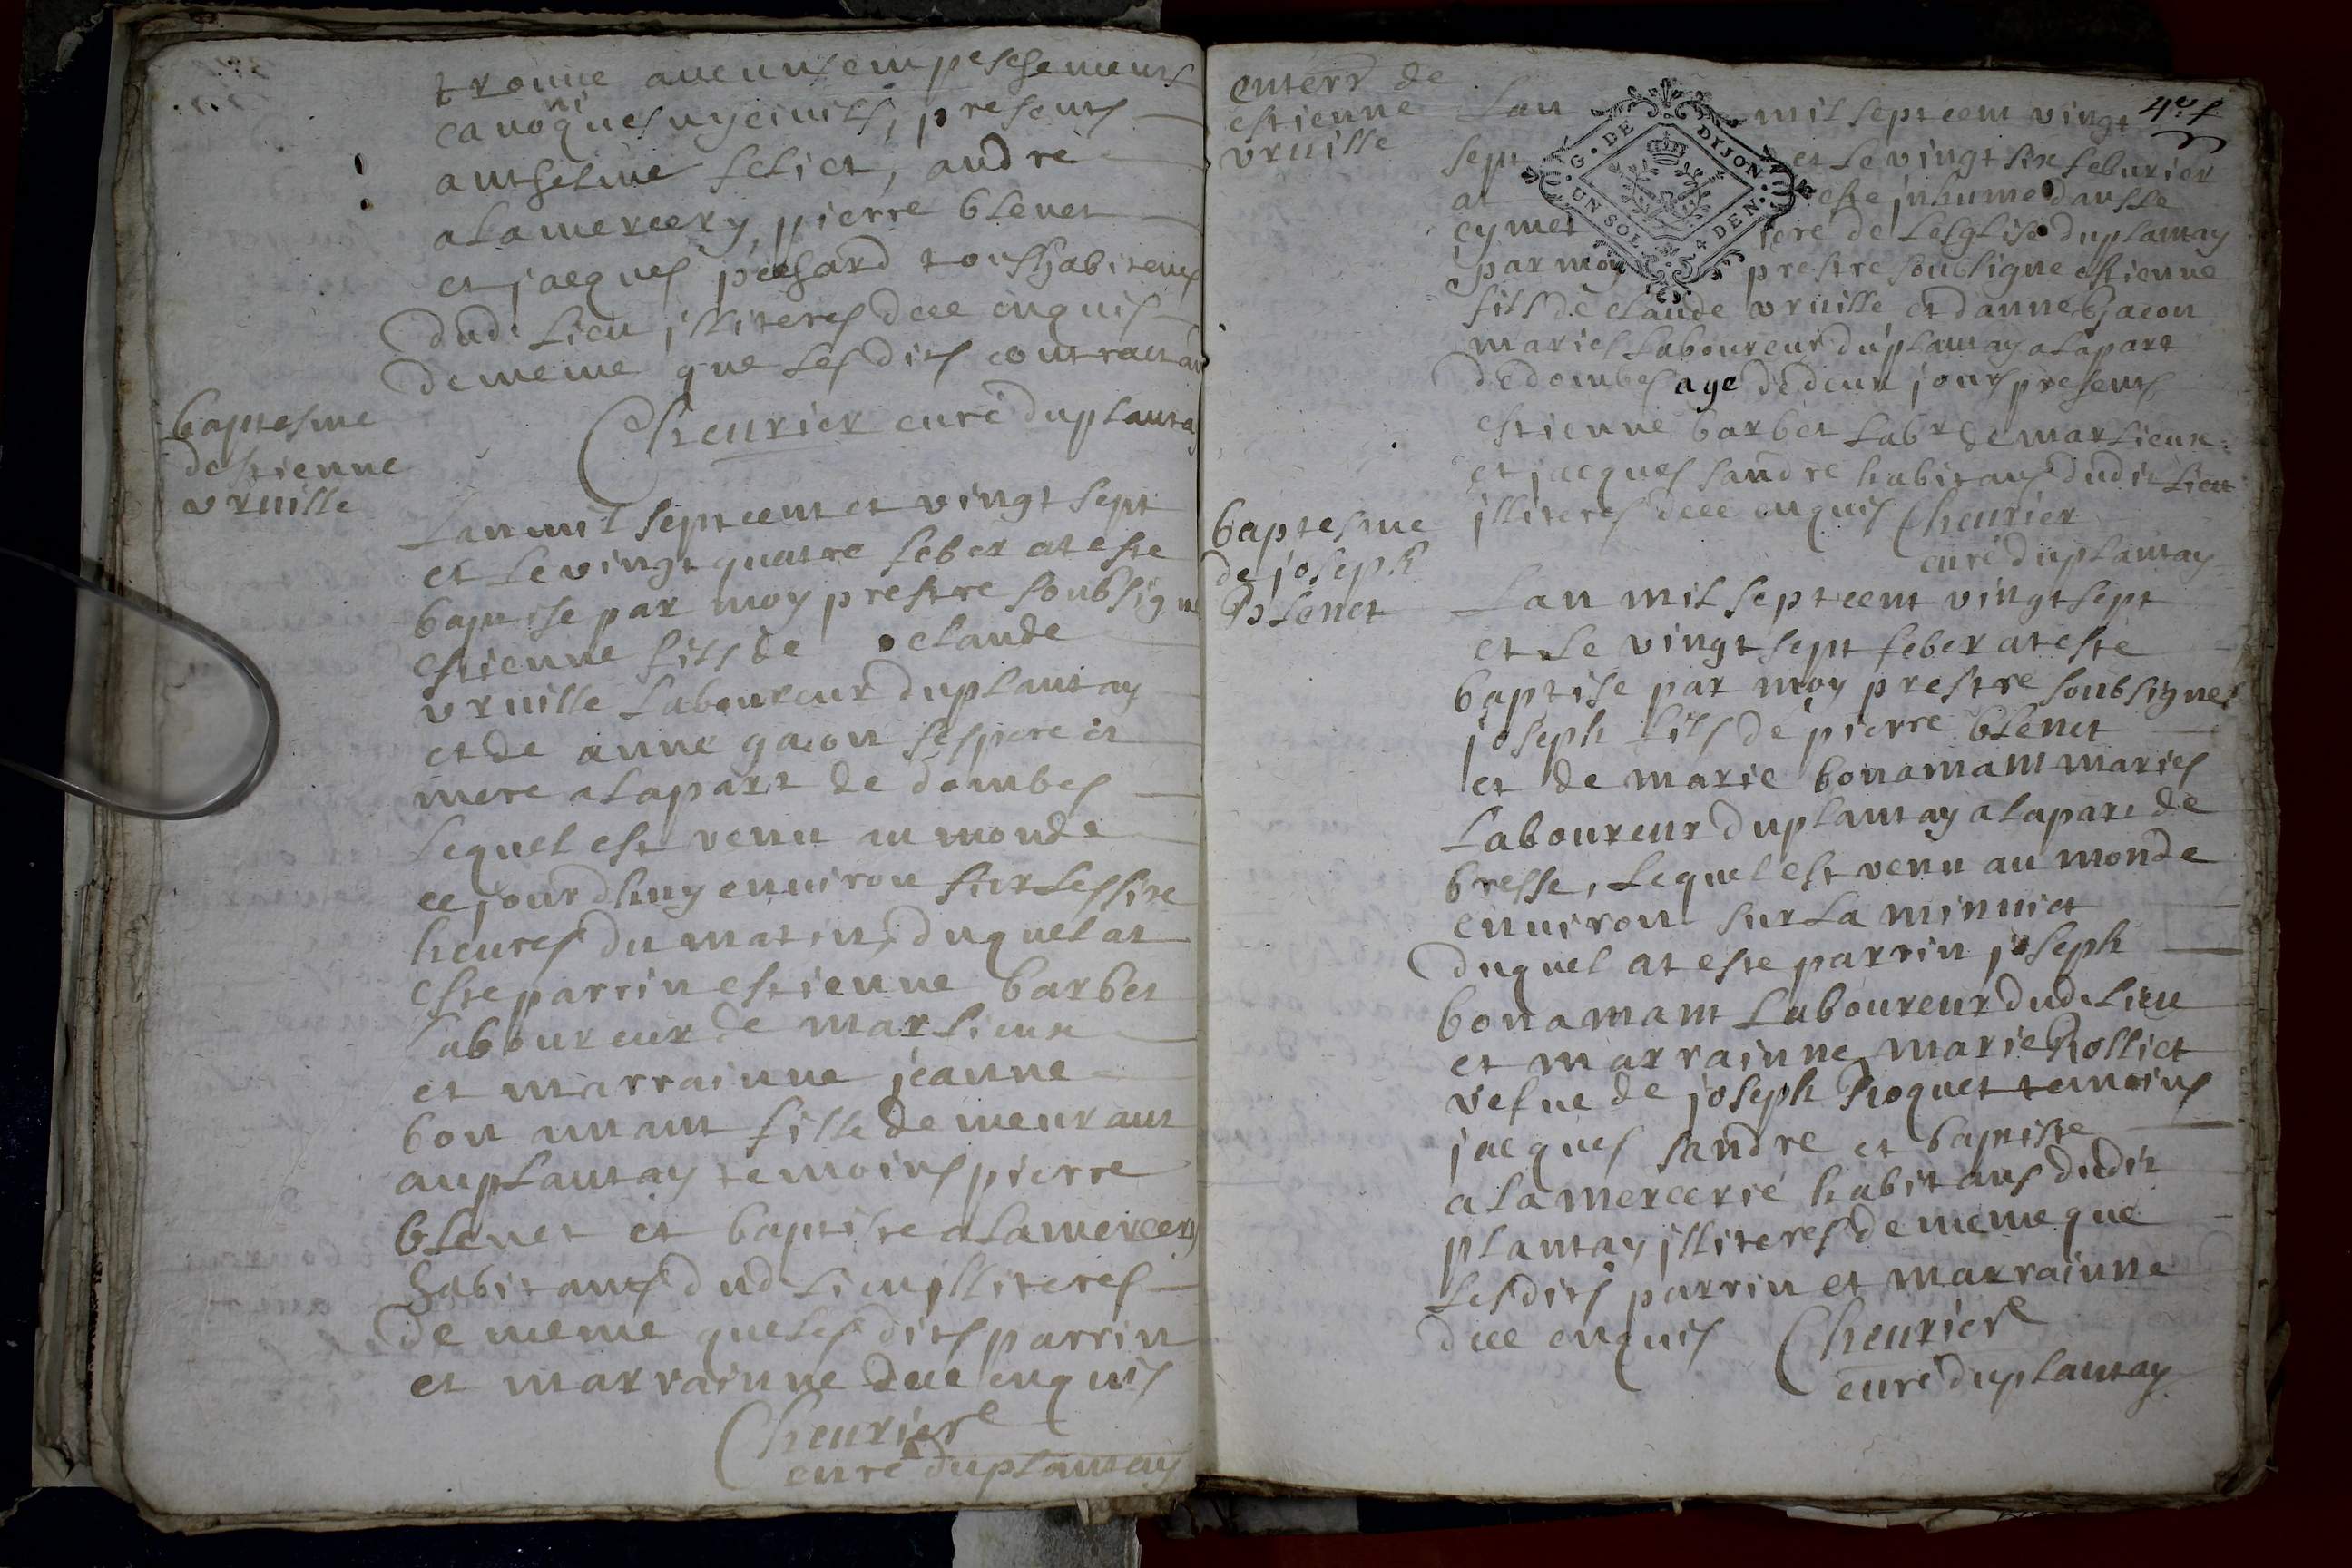 trouue aucuns empeschements
canoniques ny ciuils, presents
anthelme feliet, andre
alamercery, pierre blenet
et jacques pechard tous habitans
dud. lieu illiteres dece enquis
de meme que lesdits contractan
Cheurier curé duplanta
baptesme
destienne
vruille
Lan mil sept cent et vingt sept
et le vingt quatre feber at este
baptise par moy prestre soubsigne
estienne fils de claude
vruille laboureur duplantay
et de anne gacon ses pere et
mere alapart de dombes
lequel est venu au monde
ce jourdhuy enuiron sur les sixe
heures du matin, duquel at
este parrin estienne barbet
laboureur de marlieux
et marrainne jeanne
bon amant fille demeurant
auplantay temoins pierre
blenet et baptiste alamercery
habitans dud lieu illiteres
de meme que les dits parrin
et marrainne dece enquis
Cheurier
curé duplantay
4e f.
enterrt de
estienne
vruille
G. DE DIJON
UN SOL. 4 DEN.
Lan mil sept cent vingt
sept et le vingt six feburier
at este inhume dans le
cymet iere de lesglise duplantay
par moy prestre soubsigne estienne
fils de claude vruille et danne gacon
maries laboureur duplantay alapart
de dombes age de deux jours presents
estienne barbet labr de marlieux
et jacques sandre habitans dudit lieu
illiteres dece enquis Cheurier
curé duplantay
baptesme
de joseph
blenet
Lan mil sept cent vingt sept
et le vingt sept feber at este
baptise par moy prestre soubsigne
joseph fils de pierre blenet
et de marie bonamant maries
laboureur duplantay alapart de
bresse, lequel est venu au monde
enuiron sur la minuict
duquel at este parrin joseph
bonamant laboureur dud. lieu
et marrainne marie Rolliet
vefue de joseph Roquet temoins
jacques sandre et baptiste
alamercerie habitans dudit
plantay illiteres de meme que
lesdits parrin et marrainne
dece enquis Cheurier
curé duplantay